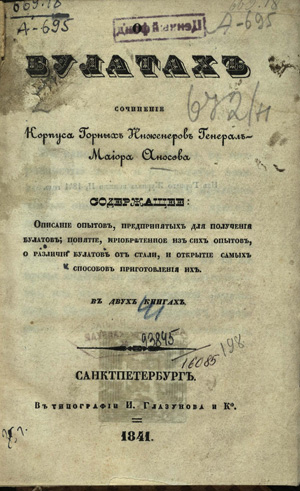 669.18
А-695
Ценный фонд
А-695
О
БУЛАТАХЪ
СОЧИНЕНІЕ
672/н
Корпуса Горныхъ Инженеровъ Генералъ-
Маіора Аносова
СОДЕРЖАЩЕЕ:
Описаніе опытовъ, предпринятыхъ для полученія
булатовъ; понятіе, пріобрѣтенное изъ сихъ опытовъ,
о различіи булатовъ отъ стали, и открытіе самыхъ
способовъ приготовленія ихъ.
ВЪ ДВУХЪ КНИГАХЪ.
93845
16085
198
САНКТПЕТЕРБУРГЪ.
Въ типографіи И. Глазунова и Кº.
1841.